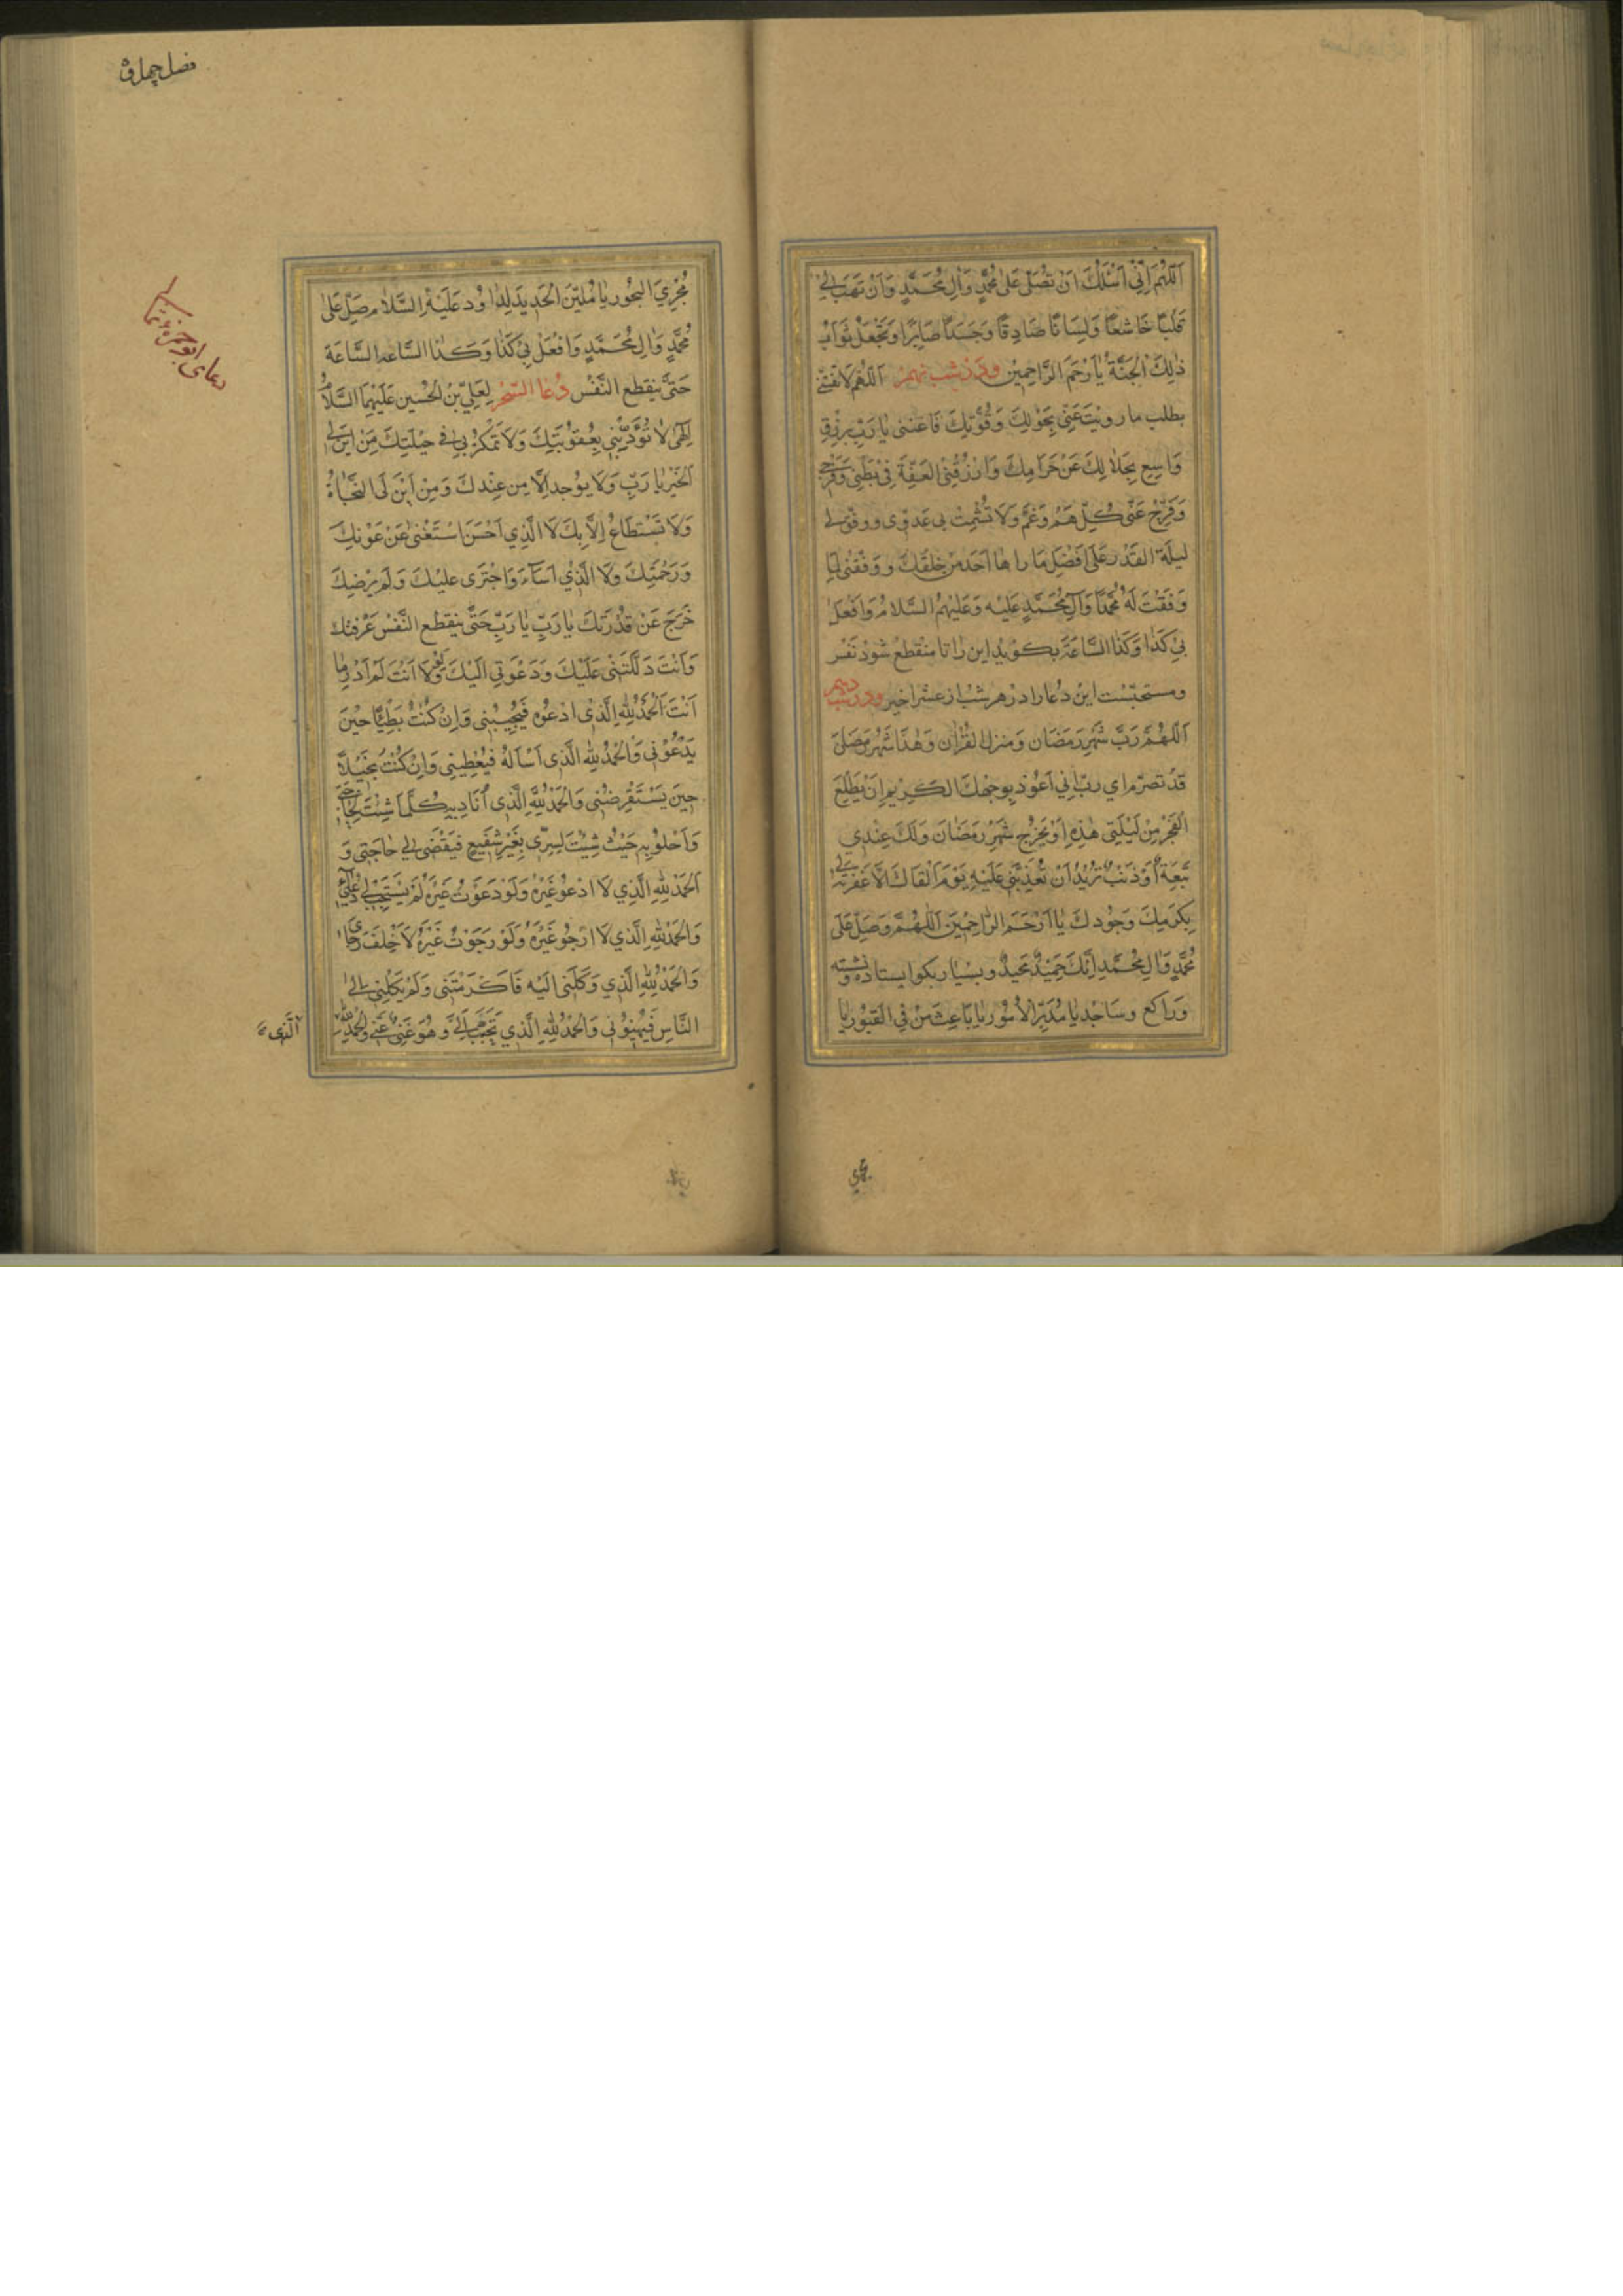 اَللّهُمَّ اِنّي اَسْئَلُكَ اَنْ تُصَلّى عَلى مُحَمَّدٍ وَآلِ مُحَمَّدٍ وَاَنْ تَهَبَ لي
قَلْبًا خاشِعًا وَلِسانًا صادِقًا وَجَسَدًا صابِرًا وَتَجْعَلَ ثَوابَ
ذلِكَ الْجَنَّةَ يا اَرْحَمَ الرّاحِمِينَ ودر شب نهم اَللّهُمَّ لا تَفْتِنّي
بطلب ما رويت عَنّي بِحَوْلِكَ وَقُوَّتِكَ فَاغْنِني يا رَبِّ بِرِزْقٍ
واسِعٍ بِحَلالِكَ عَنْ حَرامِكَ وَارْزُقْنِي الْعِفَّةَ في بَطْني وَفَرْجي
وَفَرِّجْ عَنّي كُلَّ هَمٍّ وَغَمٍّ وَلا تُشْمِتْ بي عَدُوّي وَوَفِّقْ لي
ليلَةَ القَدْرِ عَلى اَفْضَلِ ما راها اَحَدٌ مِنْ خَلْقِكَ وَوَفِّقْني لِما
وَفَّقْتَ لَهُ مُحَمَّدًا وَآلَ مُحَمَّدٍ عَلَيْهِ وَعَلَيْهِمُ السَّلامُ وَافْعَلْ
بي كَذا وَكَذا السّاعَةَ بكويد اين را تا منقطع شود نفس
ومستحبّست اين دعا را در هر شب از عشر اخير ودر شب دهم
اَللّهُمَّ رَبَّ شَهْرِ رَمَضان وَمنزل القُرْان وَهذا شَهْرُ رَمَضانَ
قَدْ تَصَرَّمَ اي ربّ اِني اَعُوذ بِوَجْهِكَ الكَريم اِنْ يَطْلُعَ
الفَجْرُ مِنْ لَيْلَتي هذِهِ اَوْ يَخْرُجَ شَهْرُ رَمَضانَ وَلَكَ عِنْدي
تَبِعَةٌ اَوْ ذَنْبٌ تُريدُ اَنْ تُعَذِّبَني عَلَيْهِ يَوْمَ اَلْقاكَ اِلاّ غَفَرْتَهُ لي
بِكَرَمِكَ وَجُودِكَ يا اَرْحَمَ الرّاحِمينَ اَللّهُمَّ وَصَلِّ عَلى
مُحَمَّدٍ وَالِ مُحَمَّدٍ اِنَّكَ حَميدٌ مَجيدٌ وبسيار بكو ايستاده ونشسته
وَراكع وساجد يا مُدَبِّرَ الاُمُورِ يا باعِثَ مَنْ فِي القُبُورِ يا
مُجْرِيَ البُحُورِ يا مُلَيِّنَ الْحَديدِ لِداوُد عَلَيْهِ السَّلام صَلِّ عَلى
مُحَمَّدٍ وَالِ مُحَمَّدٍ وَافْعَلْ بي كَذا وَكَذا السّاعة السّاعَةَ
حَتّى يَنقَطِعَ النَّفَسُ دُعا السّحَر لِعَلِيّ بْنِ الحُسَين عَلَيْهِمَا السَّلامُ
اِلهي لا تُؤَدِّبْني بِعُقوُبَتِكَ وَلا تَمْكُرْ بي في حيلَتِكَ مِنْ اَيْنَ لي
الْخَيْرُ يا رَبِّ وَلا يُوجَدُ اِلاّ مِن عِنْدِكَ وَمِنْ اَيْنَ لي النَّجاةُ
وَلا تُسْتَطاعُ اِلاّ بِكَ لا الَّذي اَحْسَنَ اسْتَغْنى عَنْ عَوْنِكَ
وَرَحْمَتِكَ وَلا الَّذي اَساءَ وَاجْتَرى عَلَيْكَ وَلَمْ يُرْضِكَ
خَرَجَ عَنْ قُدْرَتِكَ يا رَبِّ يا رَبِّ حَتّى يَنقَطِعَ النَّفَسُ عَرَفْتُكَ
وَاَنْتَ دَلَلْتَني عَلَيْكَ وَدَعَوْتَني اِلَيْكَ وَلَوْلا اَنْتَ لَمْ اَدْرِ ما
اَنْتَ اَلْحَمْدُ لِلّهِ الَّذي اَدْعُوهُ فَيُجيبُني وَاِنْ كُنْتُ بَطيئًا حينَ
يَدْعُوني وَالْحَمْدُ لِلّهِ الَّذي اَسْاَلُهُ فَيُعْطيني وَاِنْ كُنْتُ بَخيلاً
حينَ يَسْتَقْرِضُني وَالْحَمْدُ لِلّهِ الَّذي اُناديهِ كُلَّما شِئْتُ لِحاجَتي
وَاَخْلوُ بِهِ حَيْثُ شِئْتُ لِسِرّي بِغَيْرِ شَفيعٍ فَيَقْضى لي حاجَتي وَ
الْحَمْدُ لِلّهِ الَّذي لا اَدْعُو غَيْرَهُ وَلَوْ دَعَوْتُ غَيْرَهُ لَمْ يَسْتَجِبْ لي دُعائي
وَالْحَمْدُ لِلّهِ الَّذي لا اَرْجُو غَيْرَهُ وَلَوْ رَجَوْتُ غَيْرَهُ لاَخْلَفَ رَجائي
وَالْحَمْدُ لِلّهِ الَّذي وَكَلَني اِلَيْهِ فَاَكْرَمَني وَلَمْ يَكِلْني اِلى
النّاسِ فَيُهينُوني وَالْحَمْدُ لِلّهِ الَّذي تَحَبَّبَ اِلَيَّ وَهُوَ غَنِيٌّ عَنّي وَالْحَمْدُ لِلّهِ
الَّذي
دعاى ابوحمزه ثمالى
فصل چهل و